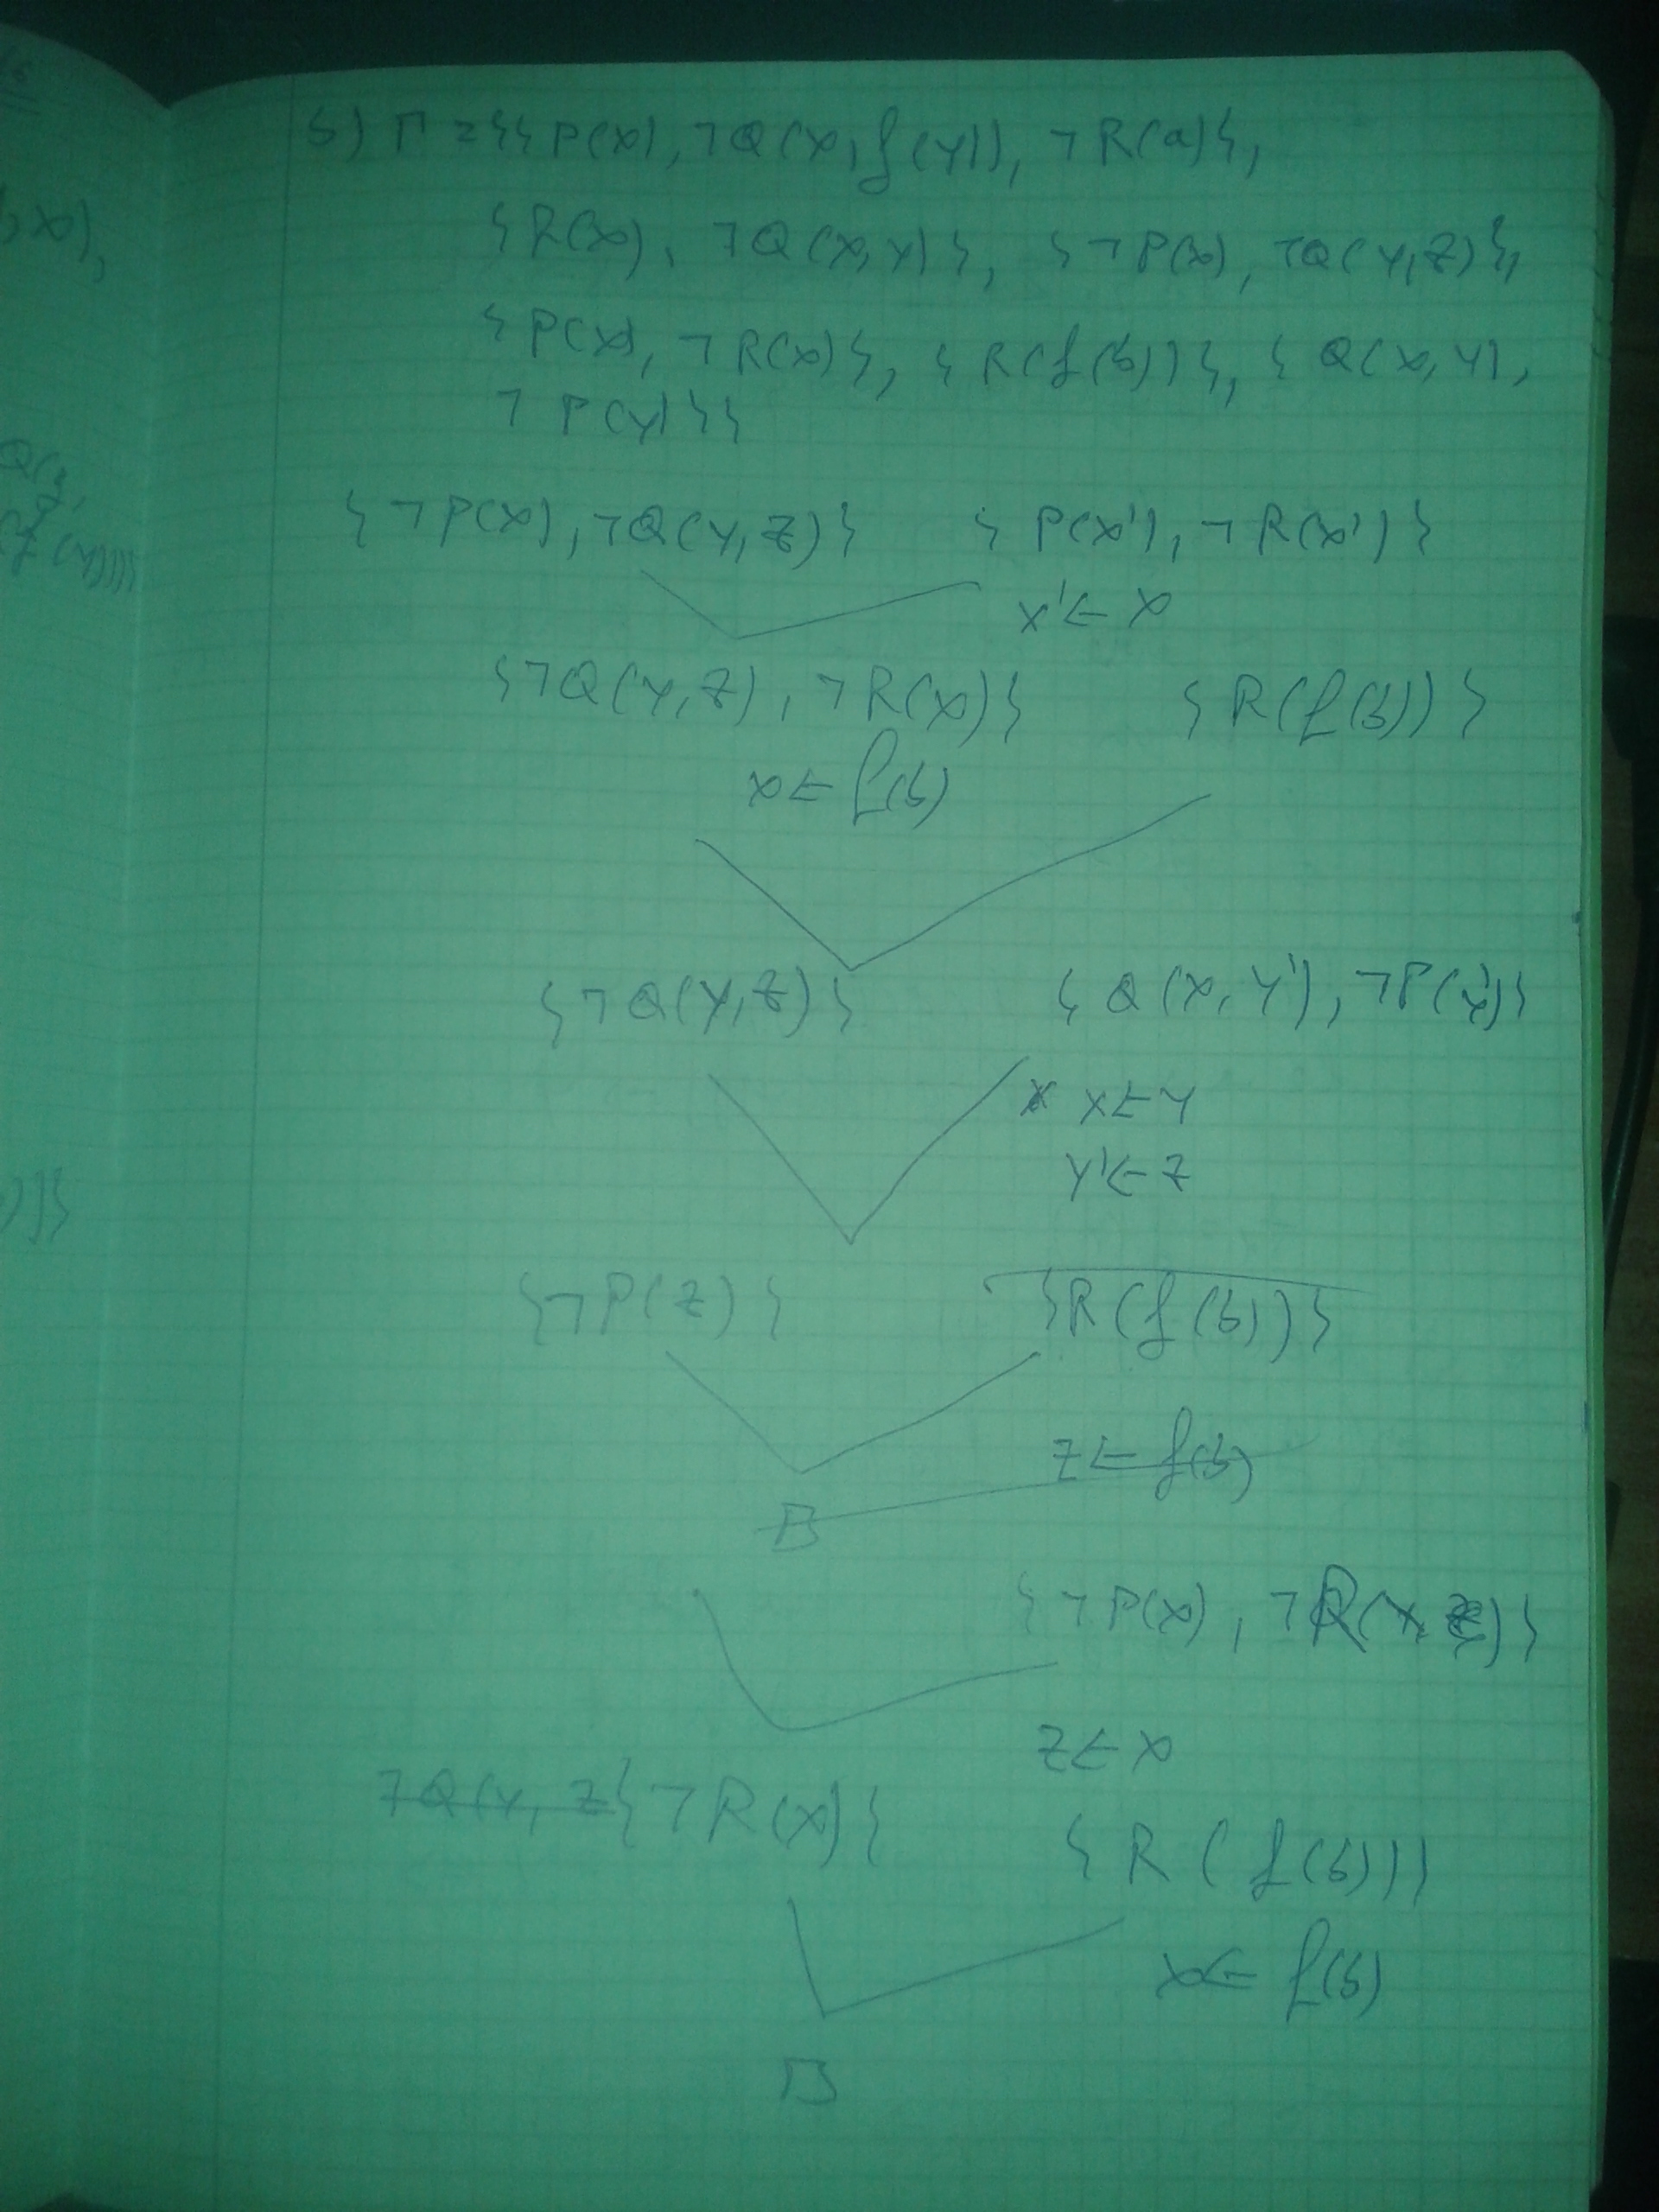 b) Γ = {{P(x), ¬Q(x, f(y)), ¬R(a)},
{R(x), ¬Q(x,y)}, {¬P(x), ¬Q(y,z)},
{P(x), ¬R(x)}, {R(f(b))}, {Q(x,y),
¬P(y)}}
{¬P(x), ¬Q(y,z)} {P(x'), ¬R(x')}
x' ← x
{¬Q(y,z), ¬R(x)} {R(f(b))}
x ← f(b)
{¬Q(y,z)} {Q(x,y'), ¬P(y')}
x ← y
y' ← z
{¬P(z)} {R(f(b))}
z ← f(b)
□
{¬P(x), ¬R(x)}
z ← x
¬Q(y, z {¬R(x)}
{R(f(b))}
x ← f(b)
□
x),
Q(z,
f(y))))
)]}